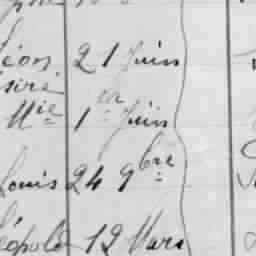 Léon 21 Juin
siré
Mie 1er Juin
Louis 24 9bre
Léopold 12 Mars